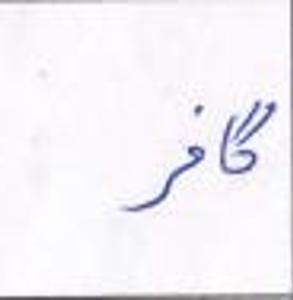 گافر